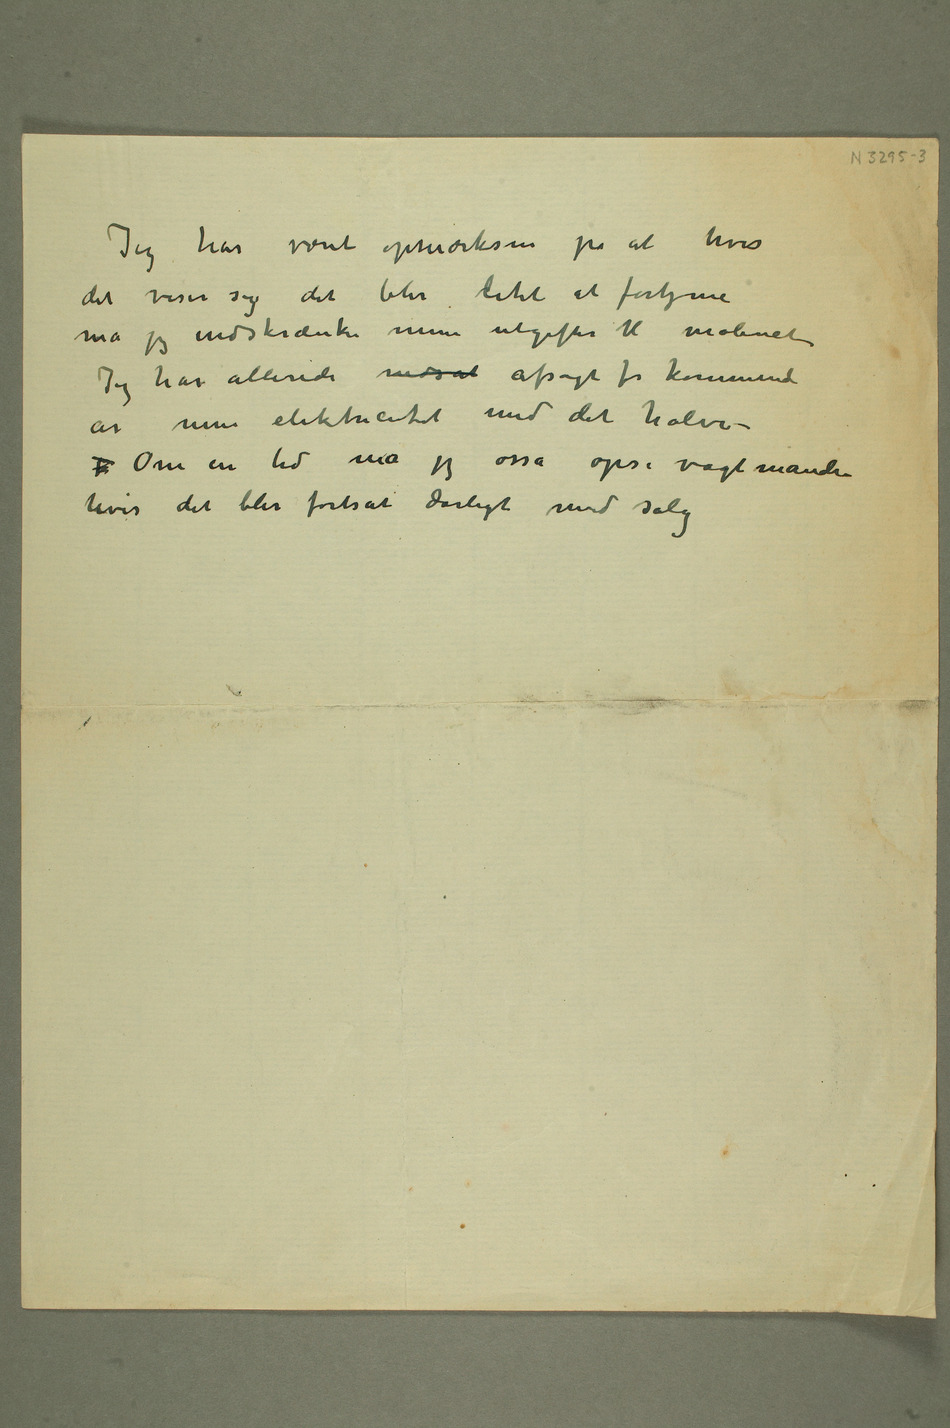 N 3295-3
Jeg har været opmærksom på at hvis
det viser sig det blir litet at fortjene
må jeg indskrænke mine utgifter til malinet
Jeg har allerede nedsat afsagt for kommende
år min elektricitet med det halve –
Om en tid må jeg også opsi vagtmanden
hvis det blir fortsat dårligt med salg